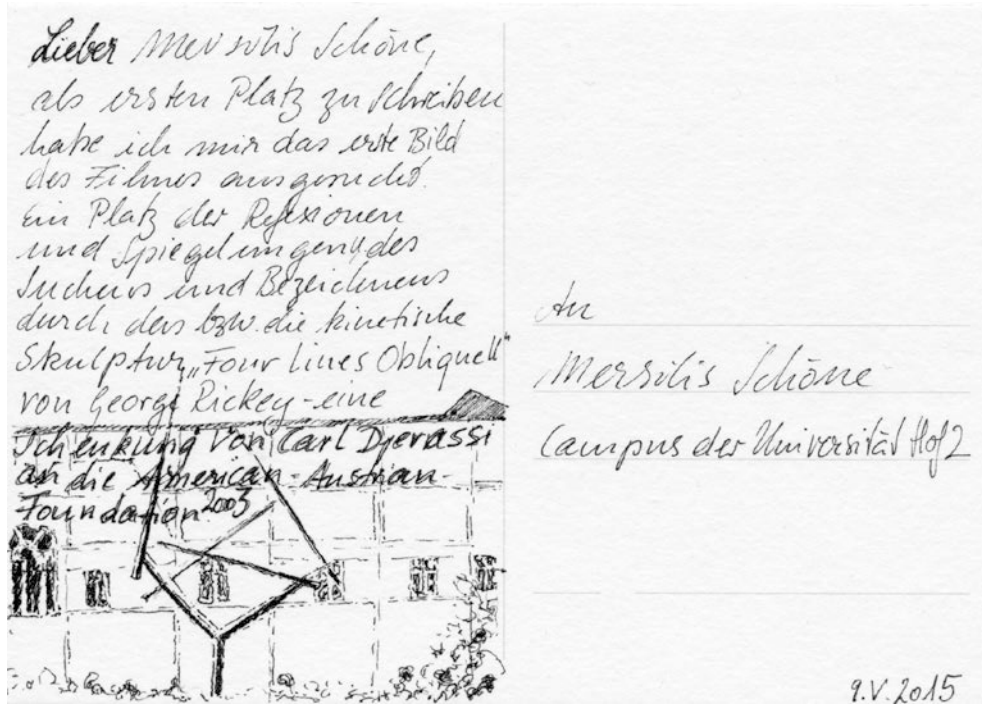 Lieber Mersolis Schöne,
als ersten Platz zu schreiben
habe ich mir das erste Bild
des Filmes ausgesucht.
Ein Platz der Reflexionen
und Spiegelungen, des
Suchens und Bezeichnens
durch das bzw. die kinetische
Skulptur „Four Lines Oblique II“
von George Rickey - eine
Schenkung von Carl Djerassi
an die American-Austrian-
Foundation 2003
An
Mersolis Schöne
Campus der Universität Hof 2
9.V.2015